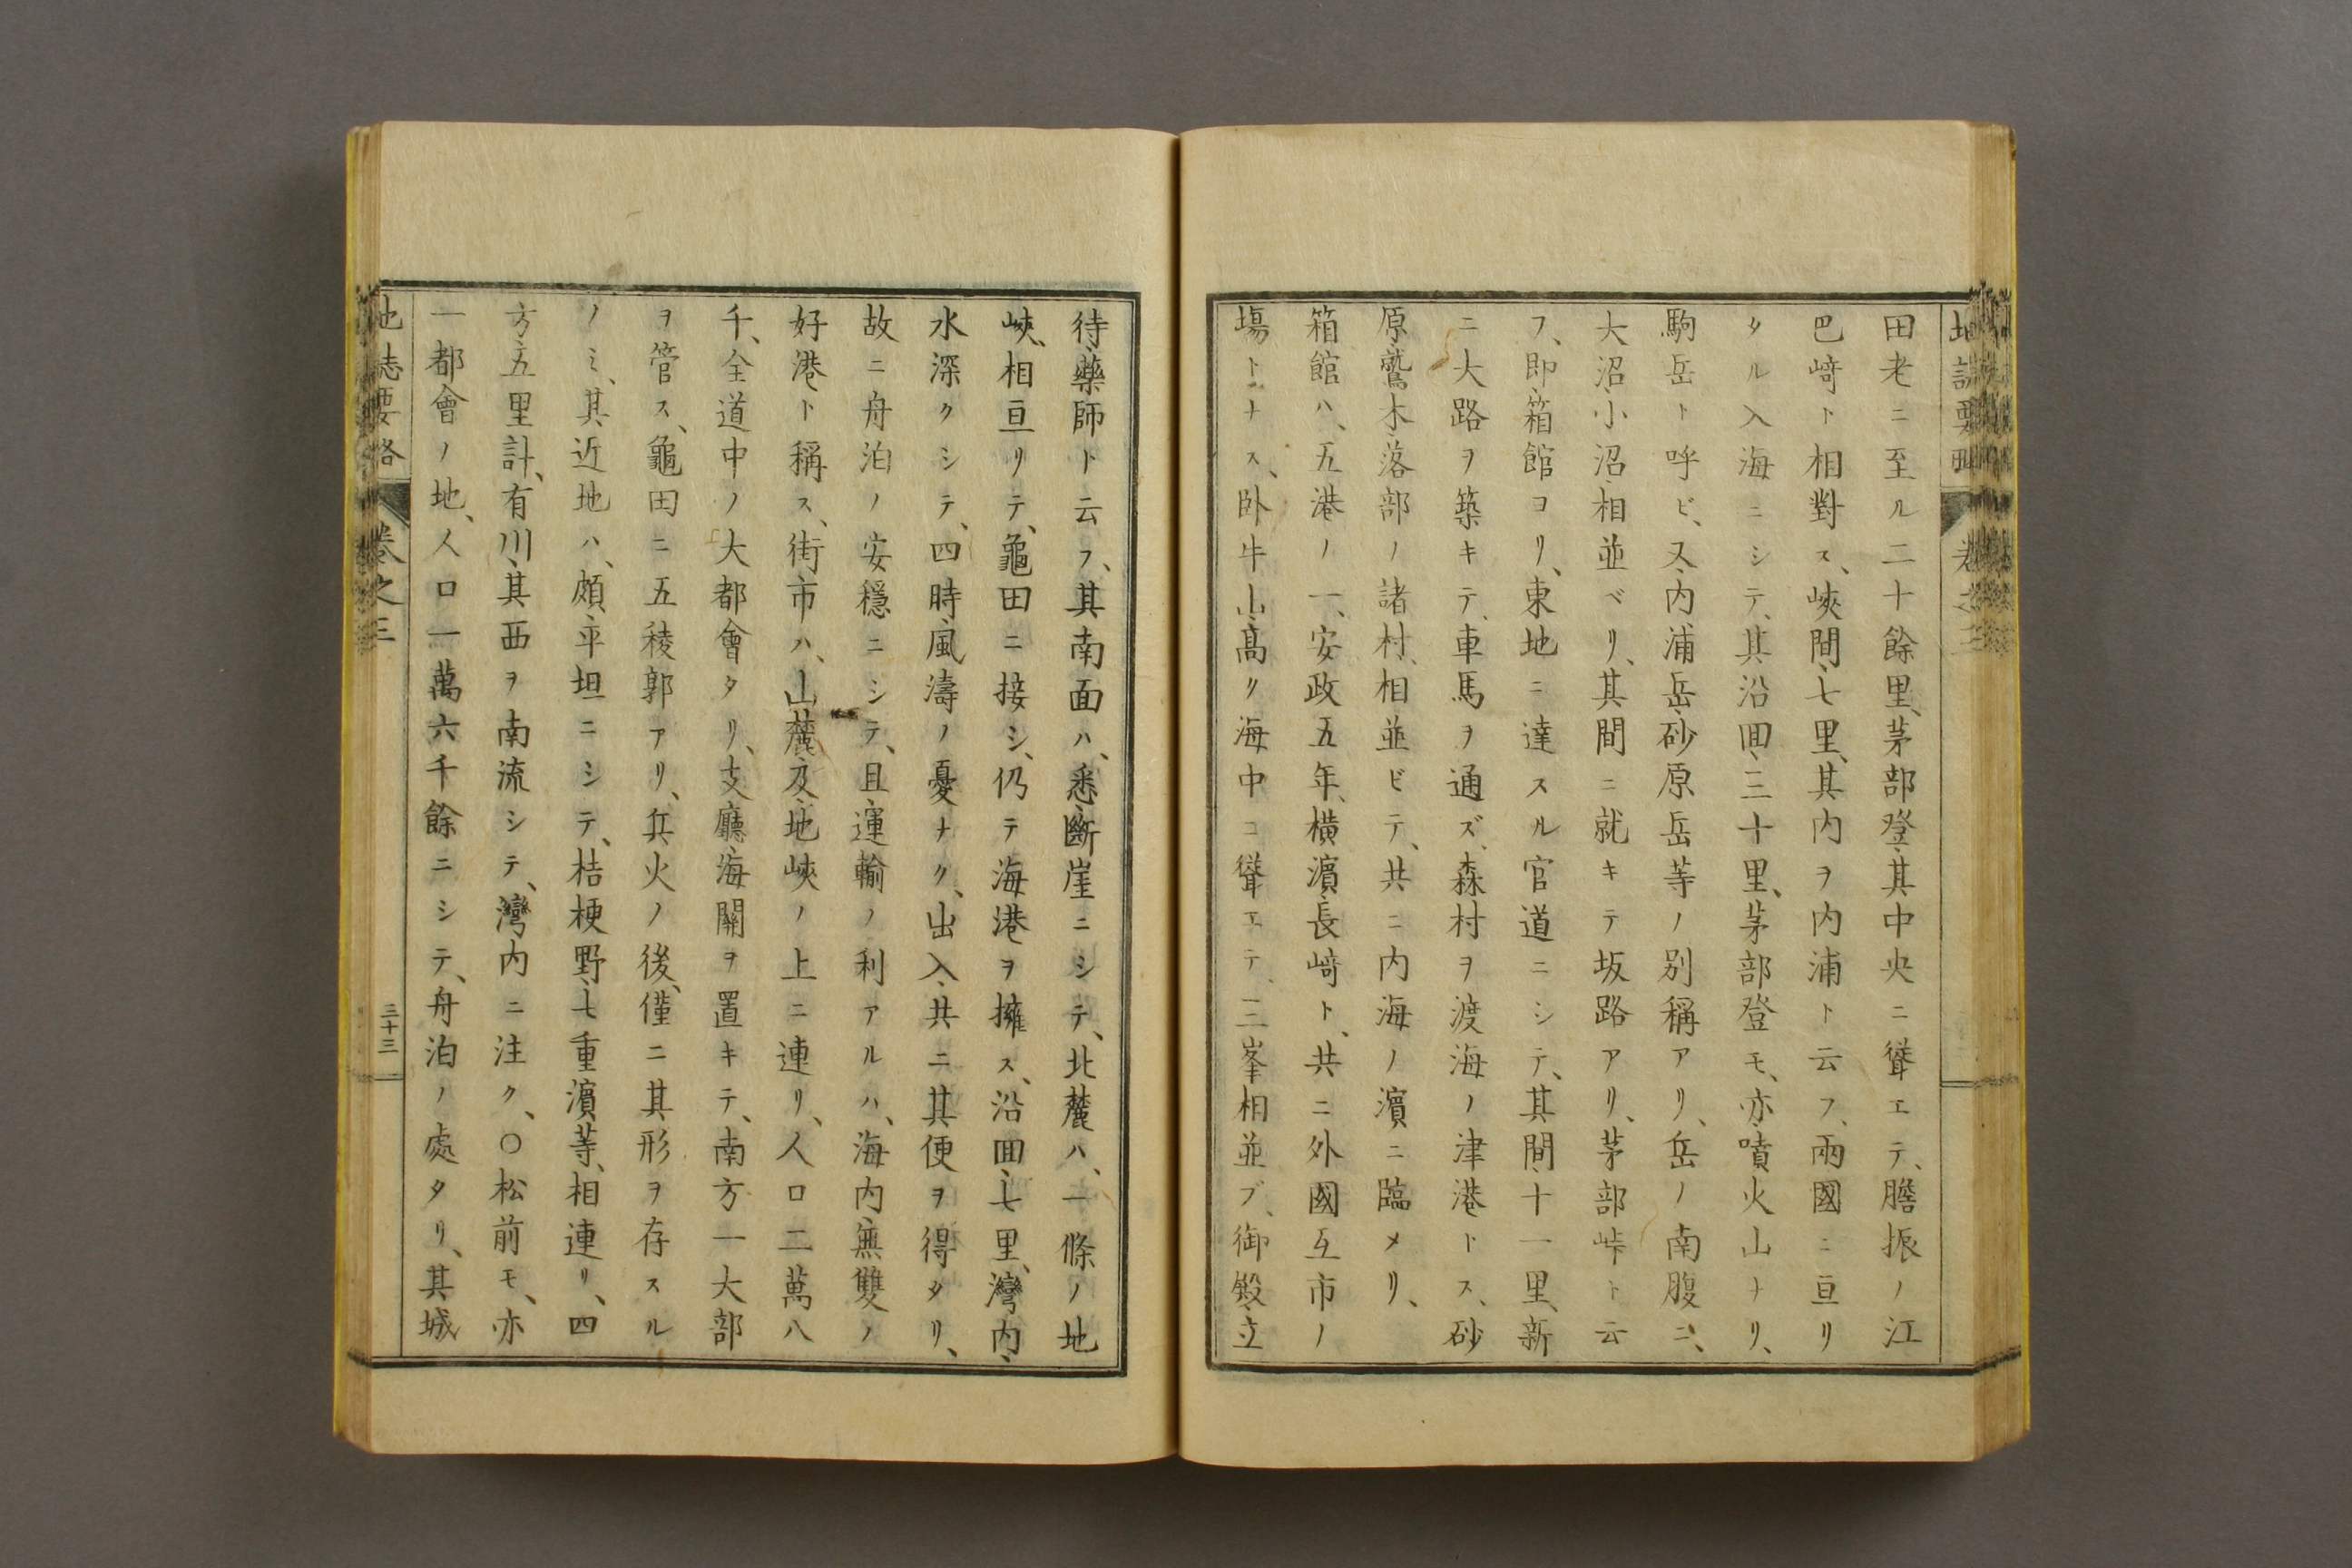 田老ニ至ル二十餘里、茅部登、其中央ニ聳エテ、膽振ノ江
巴﨑ト相對ス、峽間、七里、其内ヲ内浦ト云フ、兩國ニ亘リ
タル入海ニシテ、其沿囬、三十里、茅部登モ、亦噴火山ナリ、
駒岳ト呼ビ、又内浦岳、砂原岳等ノ別稱アリ、岳ノ南腹ニ、
大沼小沼、相並ベリ、其間ニ就キテ坂路アリ、茅部峠ト云
フ、即箱館ヨリ、東地ニ達スル官道ニシテ、其間、十一里、新
ニ大路ヲ築キテ、車馬ヲ通ズ、森村ヲ渡海ノ津港トス、砂
原、鷲木、落部ノ諸村、相並ビテ、共ニ内海ノ濱ニ臨メリ、
箱館ハ、五港ノ一、安政五年、横濱、長﨑ト、共ニ外國互市ノ
塲トナス、卧牛山、髙ク海中ニ聳エテ、三峯相並ブ、御殿、立
待、藥師ト云フ、其南面ハ、悉斷崖ニシテ、北麓ハ、一條ノ地
峽、相亘リテ、龜田ニ接シ、仍テ海港ヲ擁ス、沿囬、七里、灣内、
水深クシテ、四時、風濤ノ憂ナク、出入、共ニ其便ヲ得タリ、
故ニ舟泊ノ安穩ニシテ、且運輸ノ利アルハ、海内無雙ノ
好港ト稱ス、街市ハ、山麓及地峽ノ上ニ連リ、人口二萬八
千、全道中ノ大都會タリ、支廳、海關ヲ置キテ、南方一大部
ヲ管ス、龜田ニ五稜郭アリ、兵火ノ後、僅ニ其形ヲ存スル
ノミ、其近地ハ、頗平坦ニシテ、桔梗野、七重濱等、相連リ、四
方、五里計、有川、其西ヲ南流シテ、灣内ニ注ク、〇松前モ、亦
一都會ノ地、人口一萬六千餘ニシテ、舟泊ノ處タリ、其城
地誌要略
卷之三
三十三